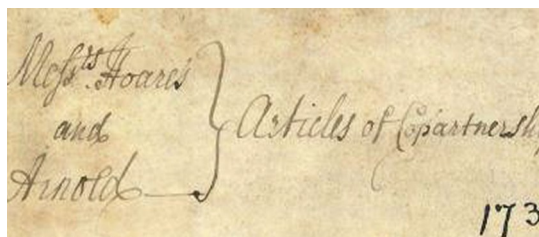 Mess.rs Hoares
and
Arnold
Articles of Copartnersh
173